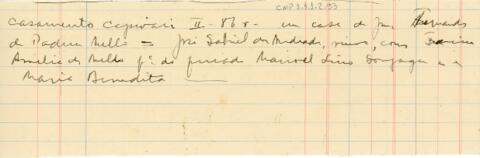 CMP 3.3.2.93
Casamento Capivari II - 86 v - em casa de José
de Padua Mello = José Gabriel de Andrade, viuvo, com
Amelia de Mello fª. de finado Manoel Lino Gonzaga e
Maria Benedita